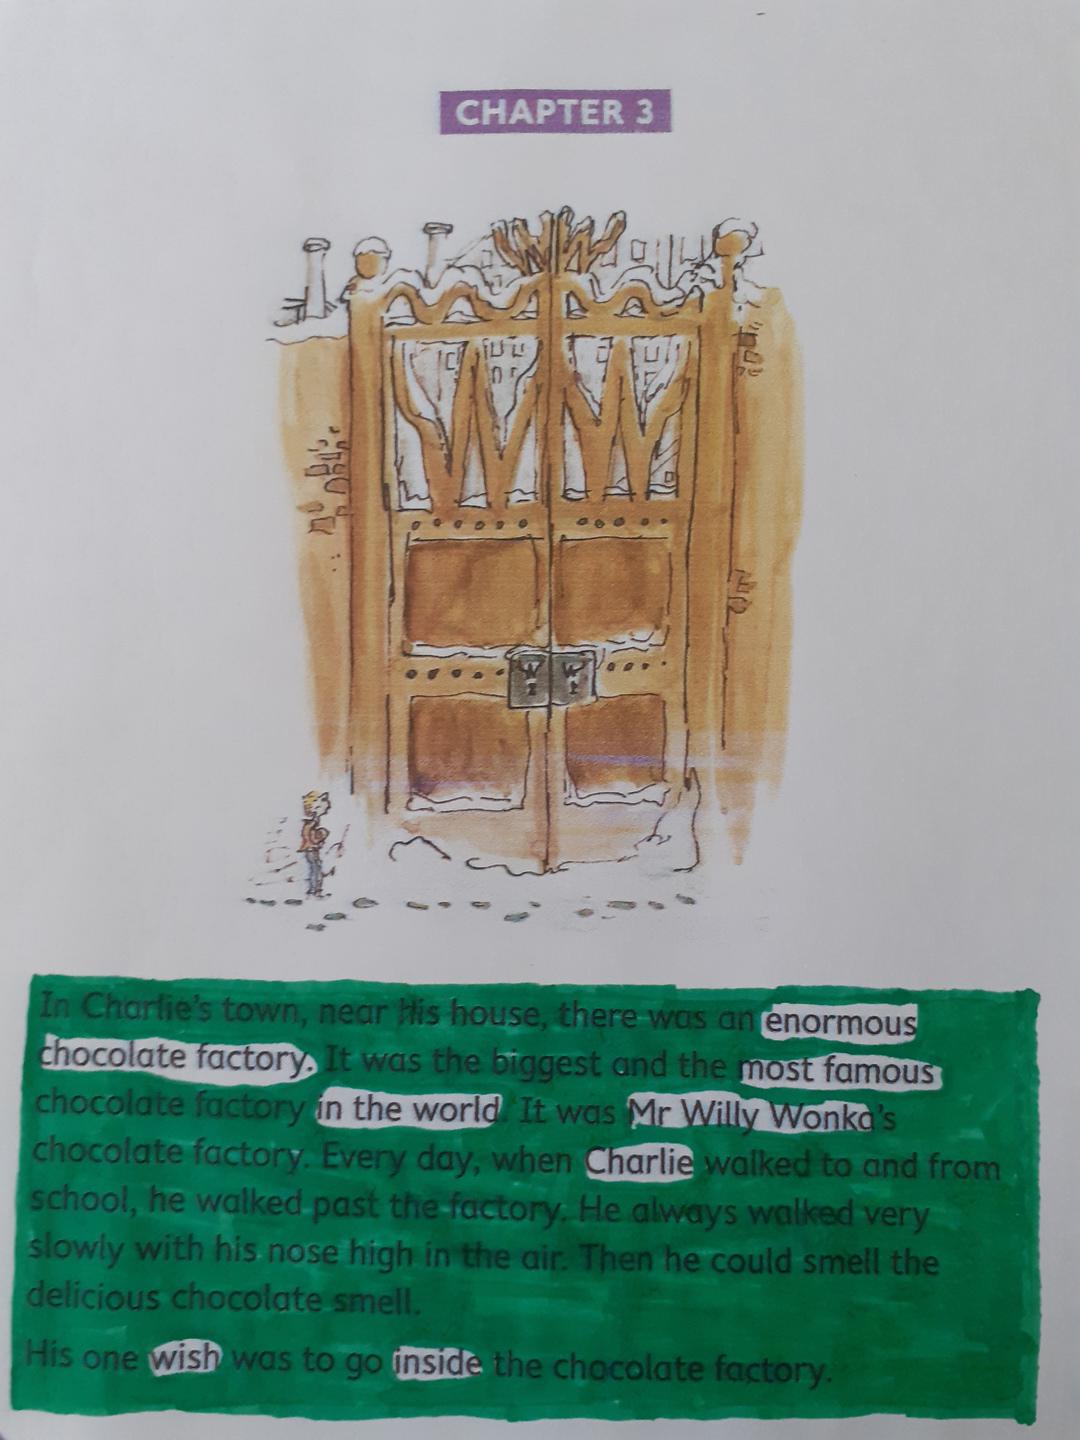 CHAPTER 3
W W
W W
W W
In Charlie's town, near His house, there was an enormous
chocolate factory. It was the biggest and the most famous
chocolate factory in the world. It was Mr Willy Wonka's
chocolate factory. Every day, when Charlie walked to and from
school, he walked past the factory. He always walked very
slowly with his nose high in the air. Then he could smell the
delicious chocolate smell.
His one wish was to go inside the chocolate factory.